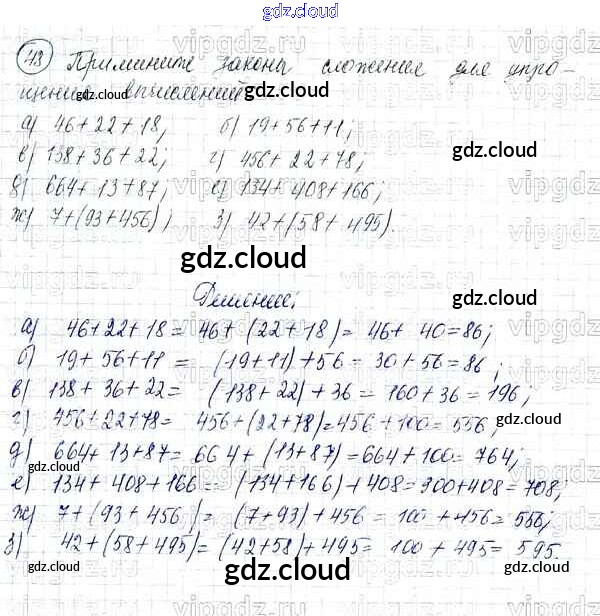 gdz.cloud
48 Примините законы сложения для упро-
щения вычислений
gdz.cloud
а) 46+22+18; б) 19+56+11;
в) 138+36+22; г) 456+22+78;
gdz.cloud
д) 664+13+87; е) 134+408+166;
ж) 7+(93+456); з) 42+(58+495).
gdz.cloud
gdz.cloud
Решение:
gdz.cloud
а) 46+22+18 = 46+(22+18)= 46+ 40=86;
б) 19+56+11 = (19+11)+56= 30+56=86;
в) 138+36+22= (138+22)+36= 160+36=196;
г) 456+22+78= 456+(22+78)=456+100=556;
gdz.cloud
д) 664+13+87= 664+(13+87)=664+100= 764;
gdz.cloud
е) 134+408+166= (134+166)+408=300+408=708;
ж) 7+(93+456)= (7+93)+456= 100+456=556;
з) 42+(58+495)=(42+58)+495= 100+495= 595.
gdz.cloud
gdz.cloud